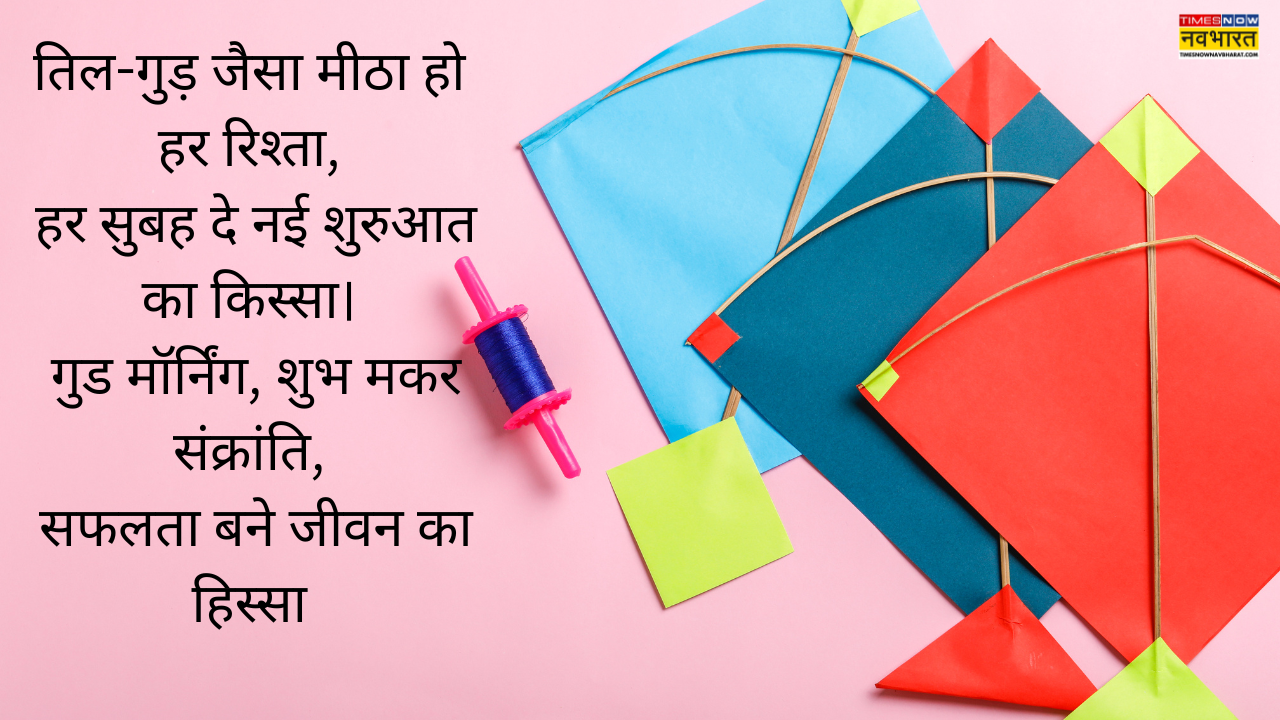 तिल-गुड़ जैसा मीठा हो
हर रिश्ता,
हर सुबह दे नई शुरुआत
का किस्सा।
गुड मॉर्निंग, शुभ मकर
संक्रांति,
सफलता बने जीवन का
हिस्सा
TIMES NOW
नवभारत
TIMESNOWNAVBHARAT.COM